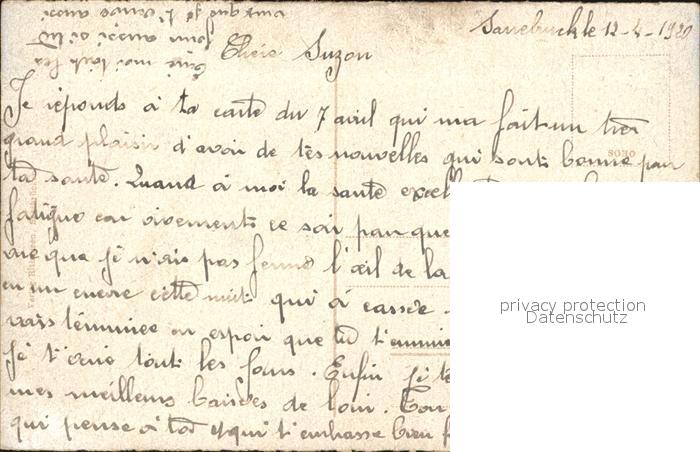 Sarrebuckle 12-4-1920
Chère Suzon
Je réponds à ta carte du 7 avril qui ma fait un très
grand plaisir d'avoir de tes nouvelles qui sont bonne pour
ta santé. Quand à moi la santé excell
fatigue car vivements ce soir par que
vue que je n'ais pas fermé l'œil de la
eu un encore cette nuit qui à cassée
vais terminée en espoir que tu t'ennuie
je t'écrie tout les jours. Enfin je te
mes meilleurs baisers de loin. Ton
qui pense à toi et qui t'embrasse bien f
Écrie moi tout les
jours aussi si tu
veux que je t'écrive aussi
privacy protection
Datenschutz